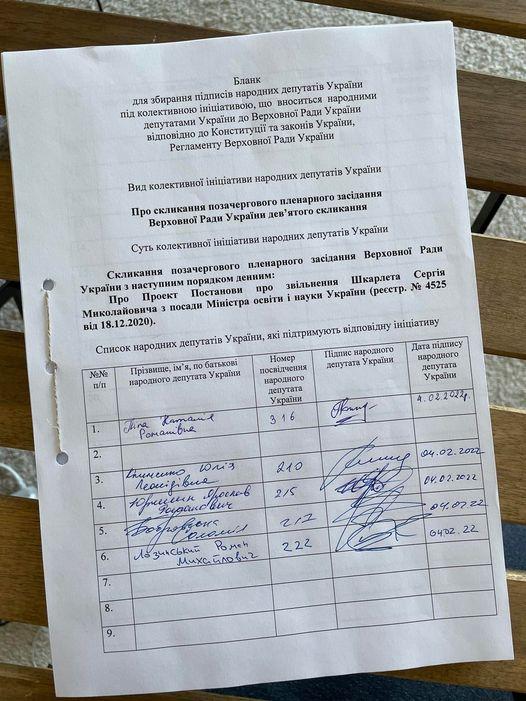 Бланк
для збирання підписів народних депутатів України
під колективною ініціативою, що вноситься народними
депутатами України до Верховної Ради України
відповідно до Конституції та законів України,
Регламенту Верховної Ради України
Вид колективної ініціативи народних депутатів України
Про скликання позачергового пленарного засідання
Верховної Ради України дев’ятого скликання
Суть колективної ініціативи народних депутатів України
Скликання позачергового пленарного засідання Верховної Ради
України з наступним порядком денним:
Про Проект Постанови про звільнення Шкарлета Сергія
Миколайовича з посади Міністра освіти і науки України (реєстр. № 4525
від 18.12.2020).
Список народних депутатів України, які підтримують відповідну ініціативу
№№ п/п
Прізвище, ім’я, по батькові народного депутата України
Номер посвідчення народного депутата України
Підпис народного депутата України
Дата підпису народного депутата України
1. Піпа Наталія Романівна 316 4.02.2022р.
2.
3. Юлія Леонідівна 210 04.02.2022
4. Юрчишин Ярослав Богданович 215 04.02.2022
5. Бобровська Соломія 217 04.02.22
6. Лозинський Роман Михайлович 222 0402.22
7.
8.
9.